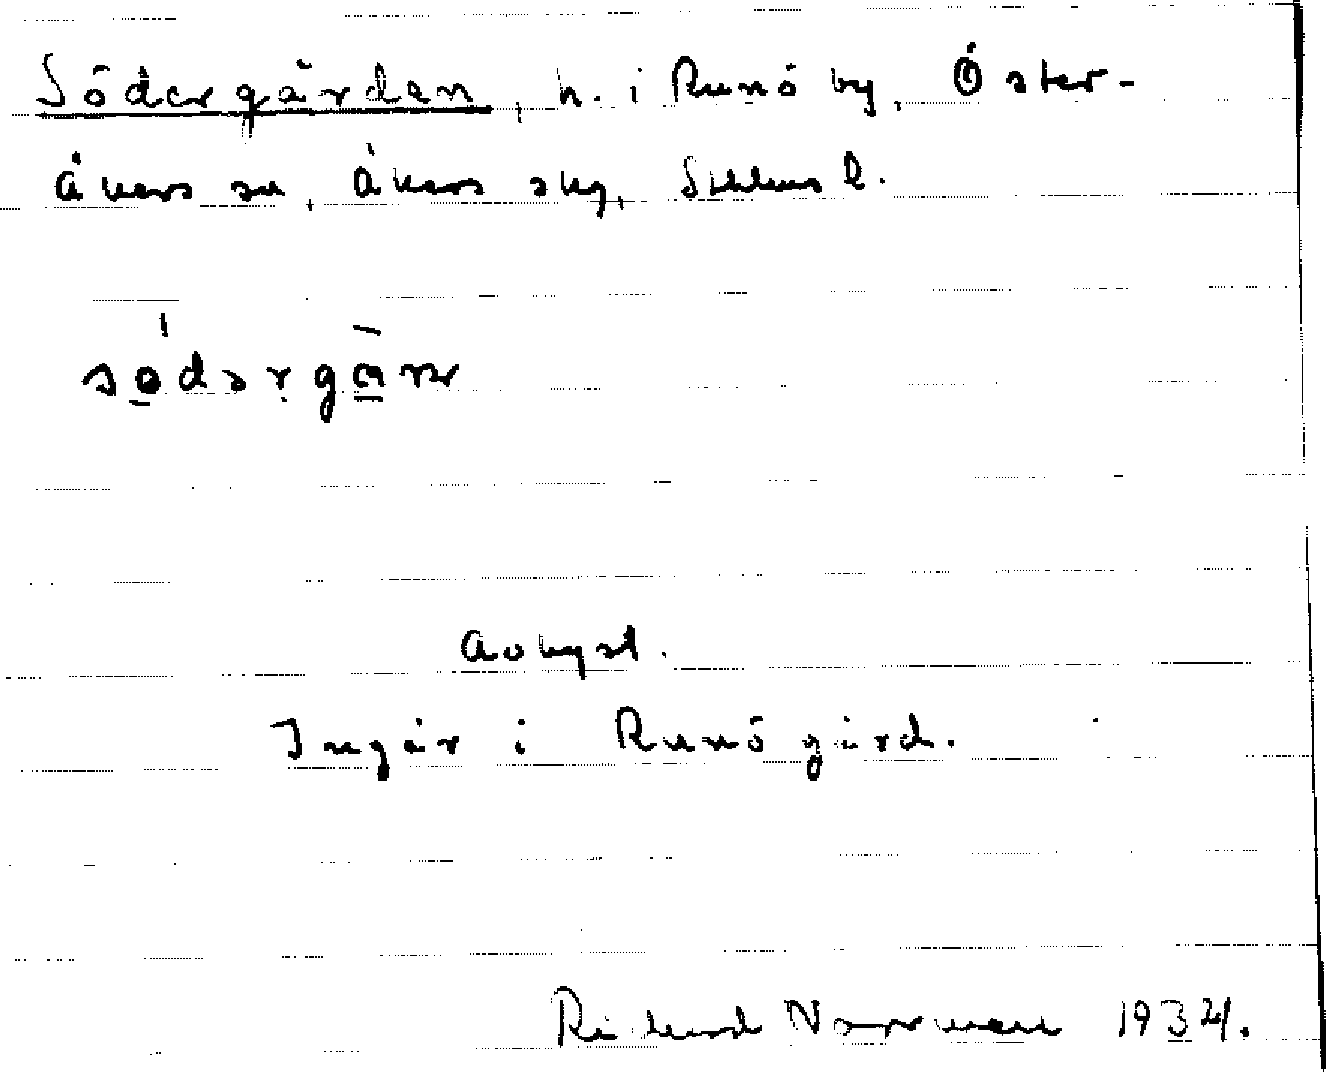 Södergården, h. i Runö by, Öster-
åkers sn, Åkers skg, Sthlms l.
södərgårn
Avhyst.
Ingår i Runö gård.
Rickard Norrman 1934.